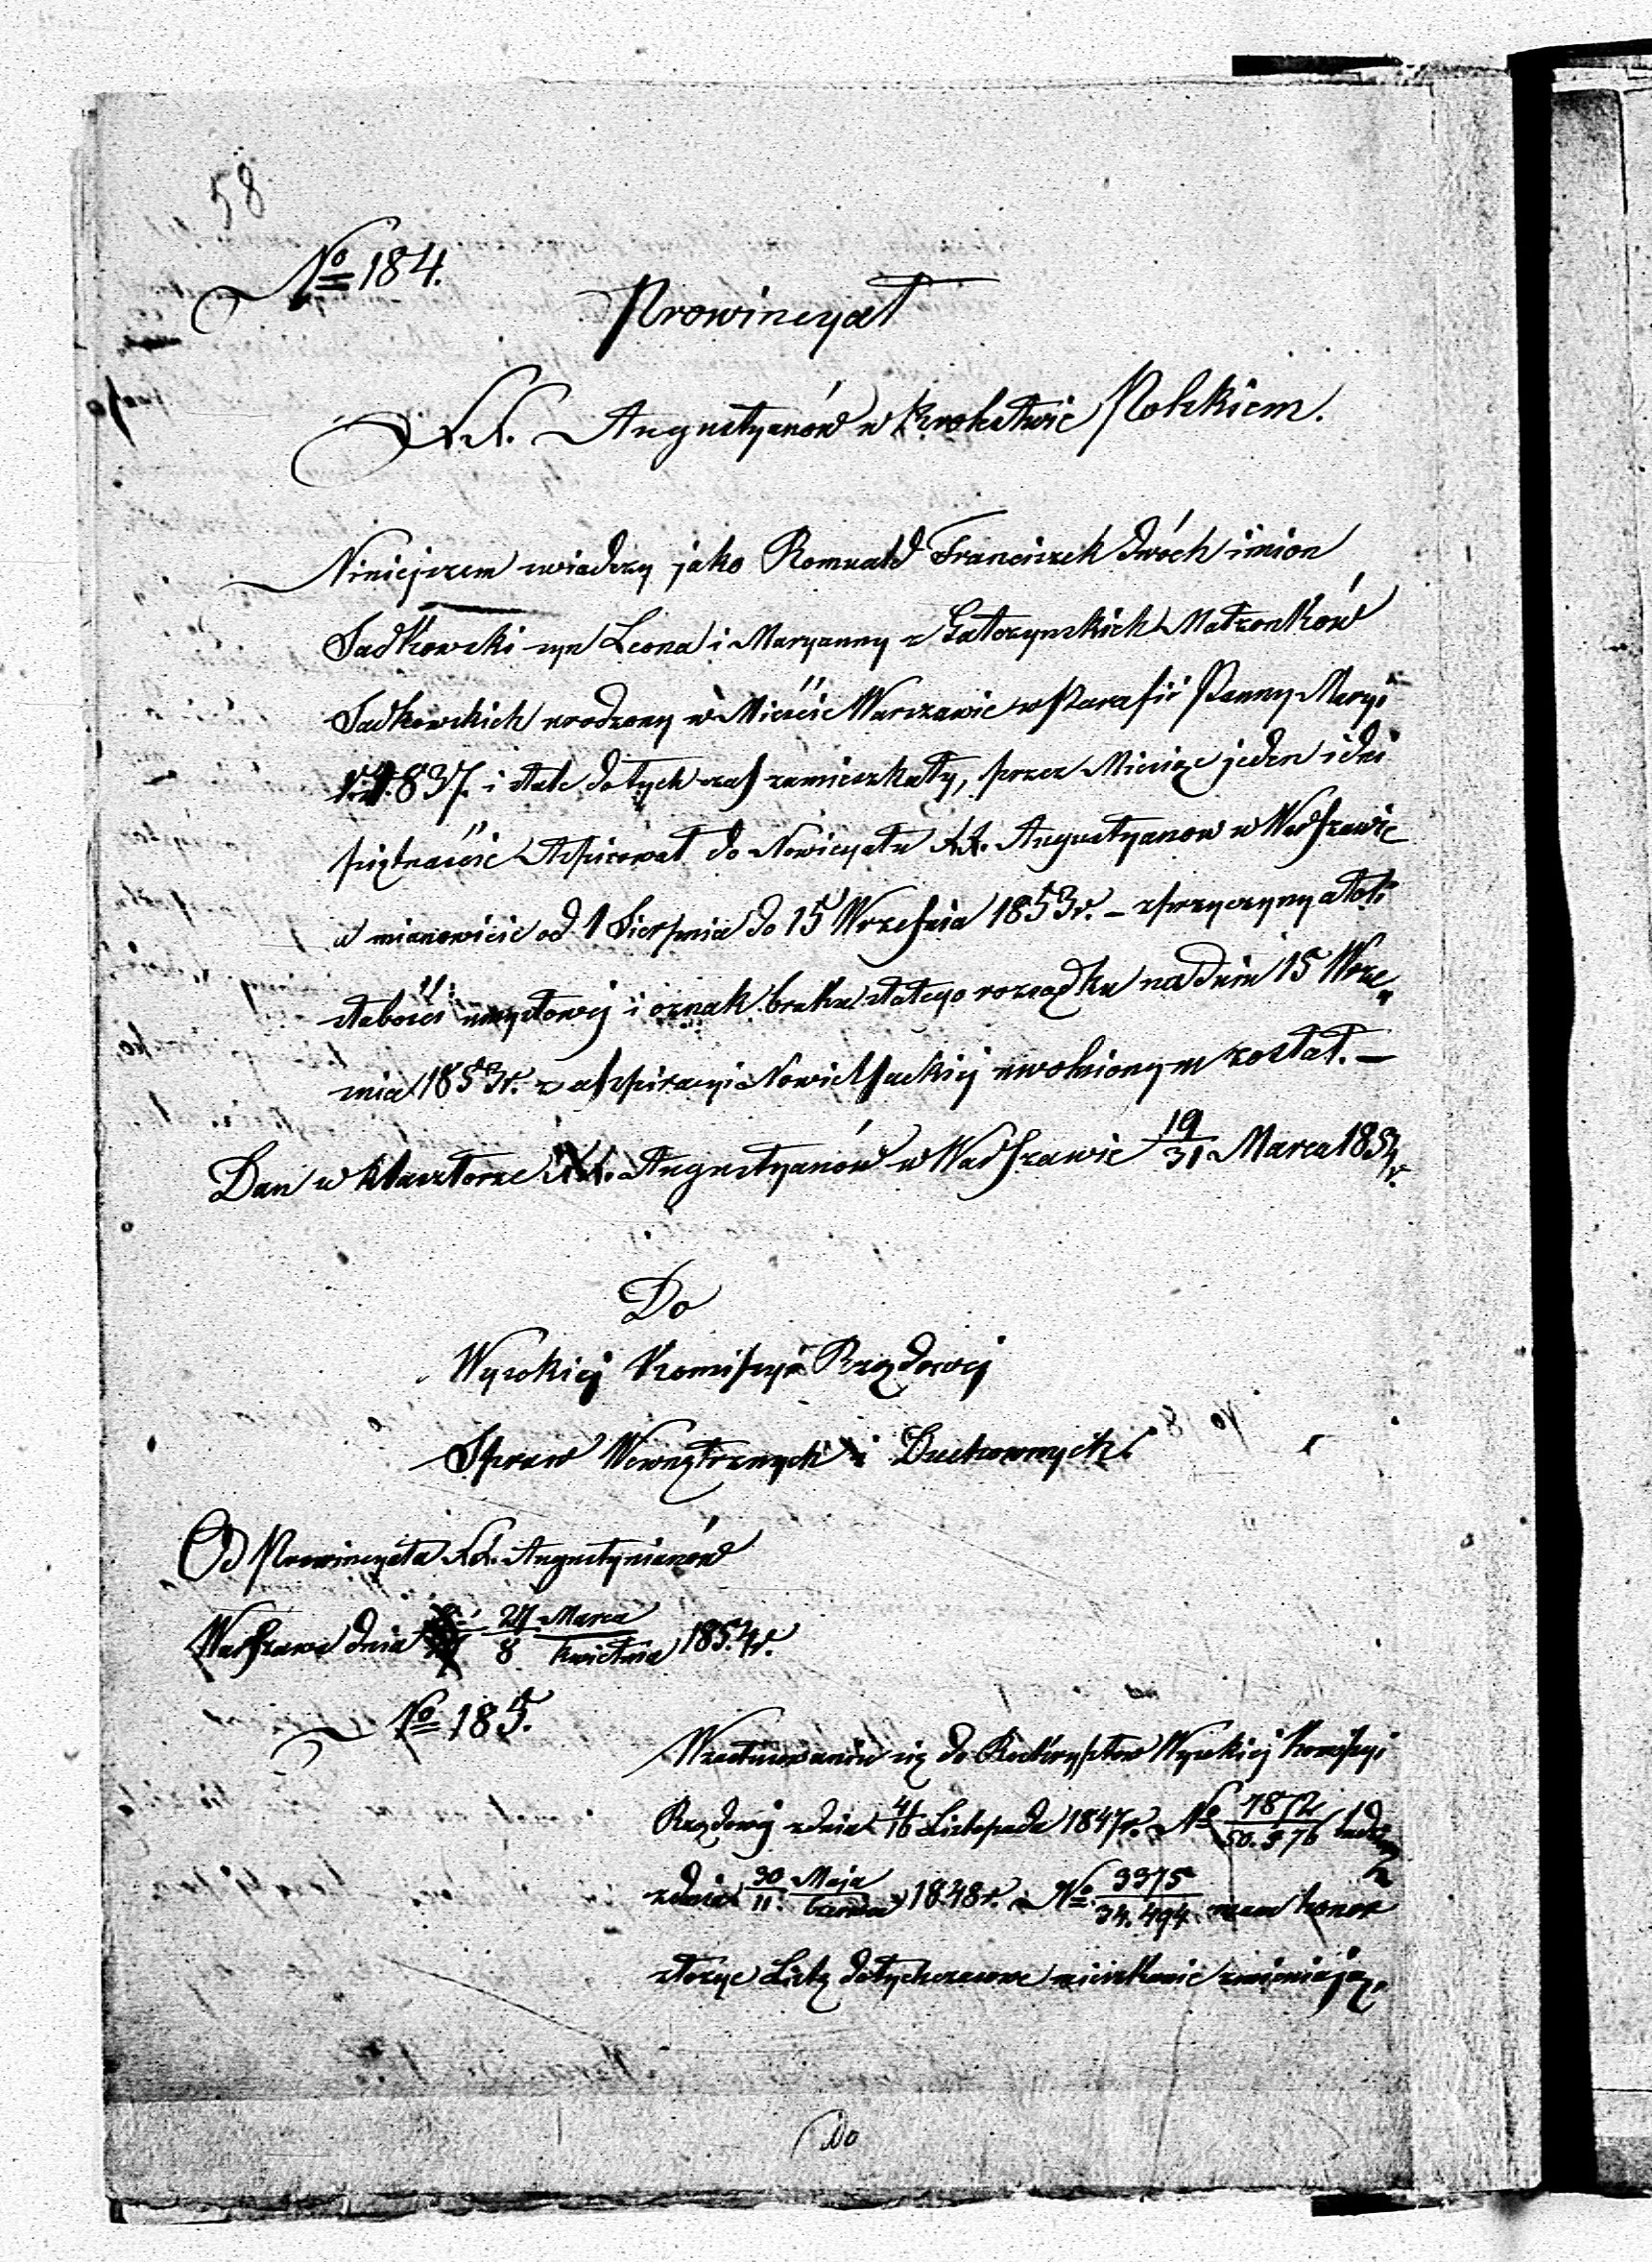 58
No 184.
Prowincyał
XX. Augustyanów w Królestwie Polskiem.
Niniejszem swiadczy jako Romuald Franciszek dwóch imion
Sadkowski syn Leona i Maryanny z Gałczynskich Małżonków
Sadkowskich urodzony w Mieście Warszawie w Parafii Panny Maryi
r. 1837. i stale dotychczas zamieszkały, przez Miesiąc jeden i dni
piętnaście Aspirował do Nowicyatu XX. Augustyanow w Warszawie
a mianowicie od 1 Sierpnia do 15 Września 1853r. – z przyczyny atoli
słabości umysłowej i oznak braku stałego rozsądku na dniu 15 Wrze„
snia 1853r. z aspiracyi Nowicyackiej uwolnionym został. –
Dan w klasztorze XX. Augustyanów w Warszawie 19/31 Marca 1854r.
Do
Wysokiej Kommissyi Rządowej
Spraw Wewnętrznych i Duchownych.
Od Prowincyała XX. Augustynianów
Warszawa dnia 27 Marca / 8 Kwietnia 1854r.
No 185.
Wzastosowaniu się do Reskryptow Wysokiej Kommissyi
Rządowej z dnia 4/16 Listopada 1847r. No 7872/50.576 tudzież
z dnia 30 Maja / 11. Czerwca 1848r. No 3375/34.494 mam honor
złożyc Listę dotychczasowe mieszkanie zmieniają„
Do